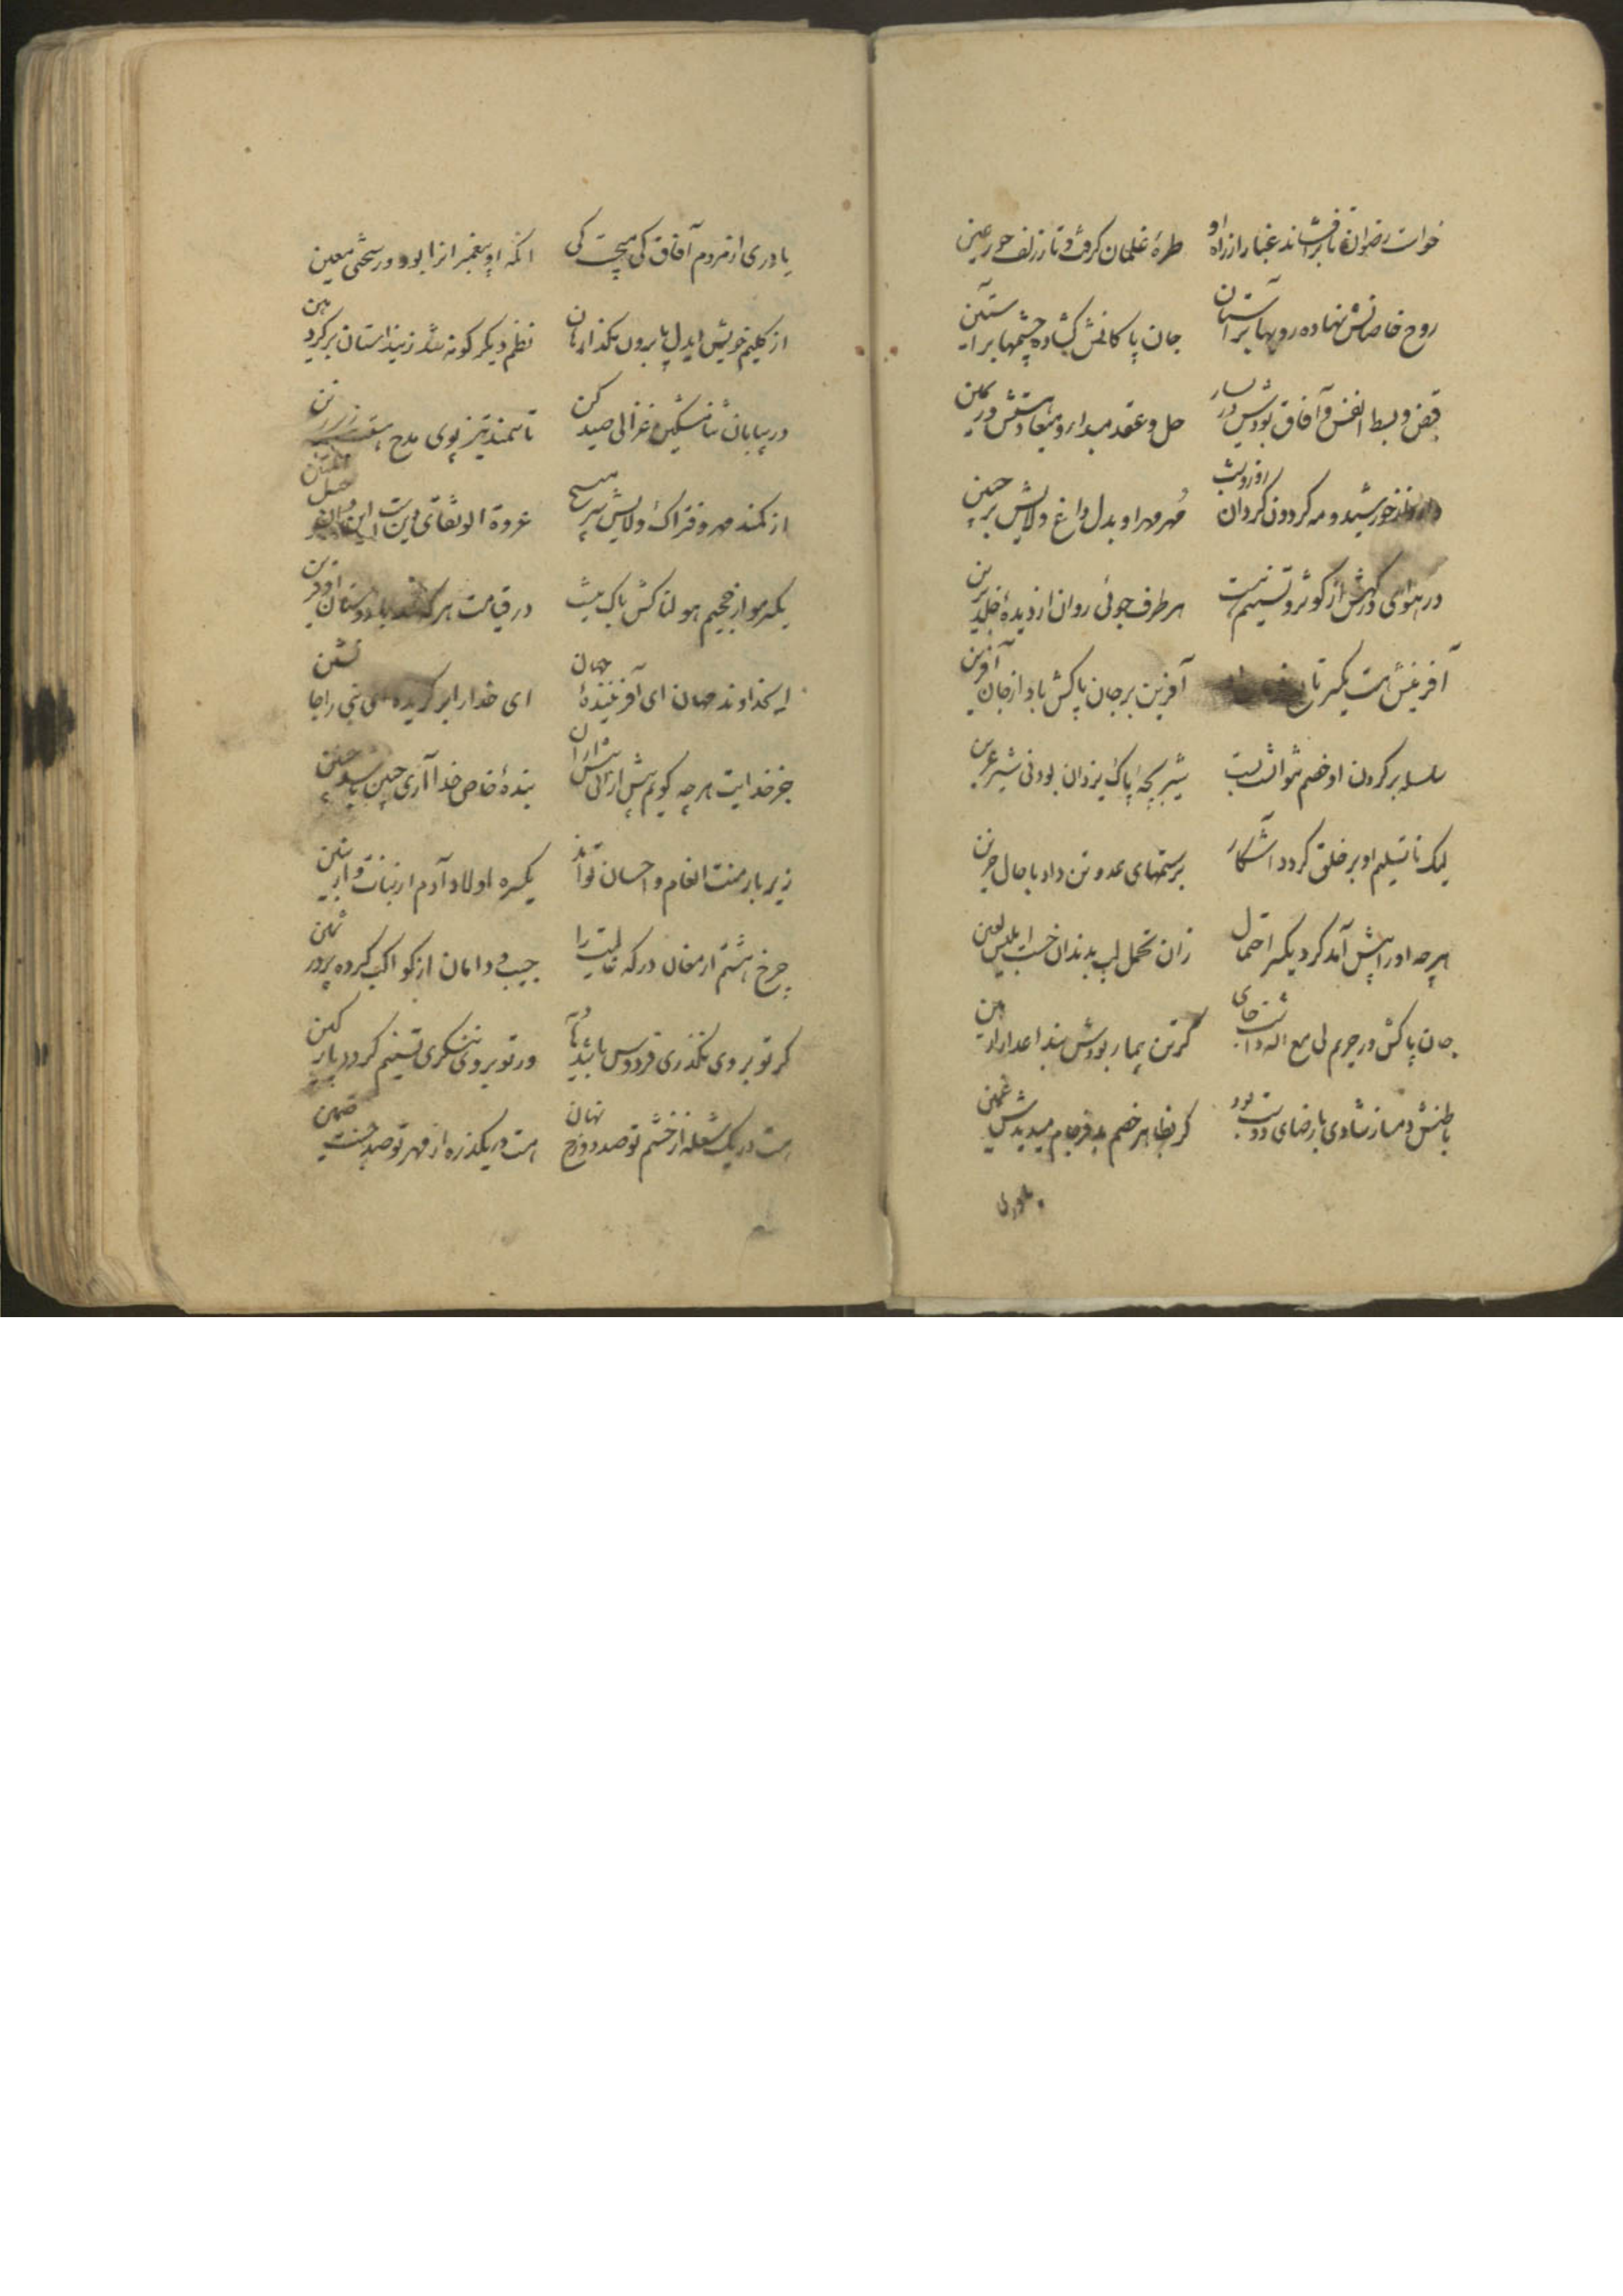 خواست رضوان تا برافشاند غبار از راه او طره غلمان گرفت و تا زلف حور عین
روح خاصانش نهاده رویها بر آستان جان پاکانش گشاده چشمها بر آستین
قبض و بسط انفس و آفاق بودش در یسار حل و عقد مبدا و معادستش در یمین
خورشید و مه گردون گردان روز و شب مهر مهر او بدل داغ ولایش بر جبین
در هوای درگهش از کوثر و تسنیم نیست هر طرف جوئی روان از دیده خلد برین
آفرینش هست یکسر آفرین بر جان پاکش باد از جان آفرین
سلسله بر گردن او خصم نتوانست بست شیر بچه پاک یزدان بود نی شیر عرین
لیک تا تسلیم او بر خلق گردد آشکار بر ستمهای عدو تن داد با حال حزین
هرچه او را پیش آمد کرد یکسر احتمال زان تحمل لب بدندان خست ابلیس لعین
جان پاکش در حریم لی مع الله داشت جای گر تن بیمار بودش بند اعدا را رهین
باطنش دمساز شادی با رضای دوست بود گر بظاهر خصم بد فرجام میدیدش غمین
یاوری
یاوری از مردم آفاق کی میجست کی آنکه او پیغمبران را بود در سختی معین
از گلیم خویش ایدل پا برون مگذار هان نظم دیگر گونه شد زین داستان برگرد هین
در بیابان ثنا مشکین غزالی صید کن تا سمند تیز پوی مدح
از کمند مهر و فتراک ولایش سر مپیچ عروة الوثقای دین است این و آن حبل المتین
یکسر مو از جحیم هولناکش باک نیست در قیامت هر که
ایخداوند جهان ای آفریننده جهان ای خدا را برگزیده ای نبی را جانشین
جز خدایت هرچه گویم پیش از آنی بیش از آن بنده خاص خدا آری چنین باید چنین
زیر بار منت انعام و احسان تواند یکسره اولاد آدم از بنات و از بنین
چرخ هشتم ارمغان درگه عالیت را جیب و دامان از کواکب کرده پر در ثمین
گر تو بر وی نگذری فردوس باشد بی‌بها ور تو بر وی ننگری تسنیم گردد پارگین
هست در یک شعله از خشم تو صد دوزخ نهان هست در یکذره از مهر تو صد جنت ضمین